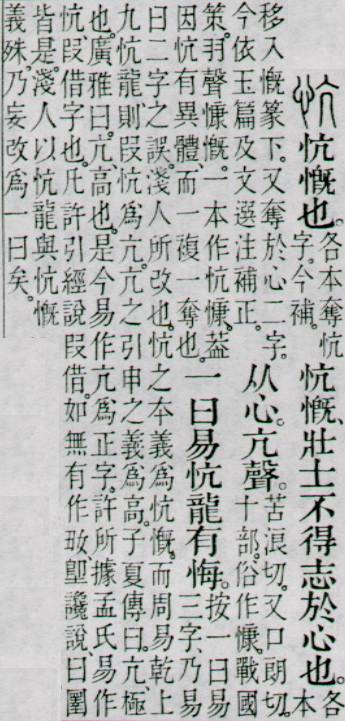 忼 忼慨也。各本奪忼
字。今補。
忼慨、壯士不得志於心也。各
本
移入慨篆下。又奪於心二字。
今依玉篇及文選注補正。
从心。亢聲。苦浪切。又口朗切。
十部。俗作慷。戰國
策。羽聲慷慨。一本作忼慷。葢
因忼有異體。而一複一奪也。
一曰易忼龍有悔。按一曰易
三字、乃易
曰二字之誤。淺人所改也。忼之本義爲忼慨。而周易乾上
九忼龍、則叚忼爲亢。亢之引申之義爲高。子夏傳曰。亢、極
也。廣雅曰。亢、高也。是今易作亢爲正字。許所據孟氏易作
忼、叚借字也。凡許引經說叚借。如無有作、堲讒說、曰圛
皆是。淺人以忼龍與忼慨
義殊。乃妄改爲一曰矣。